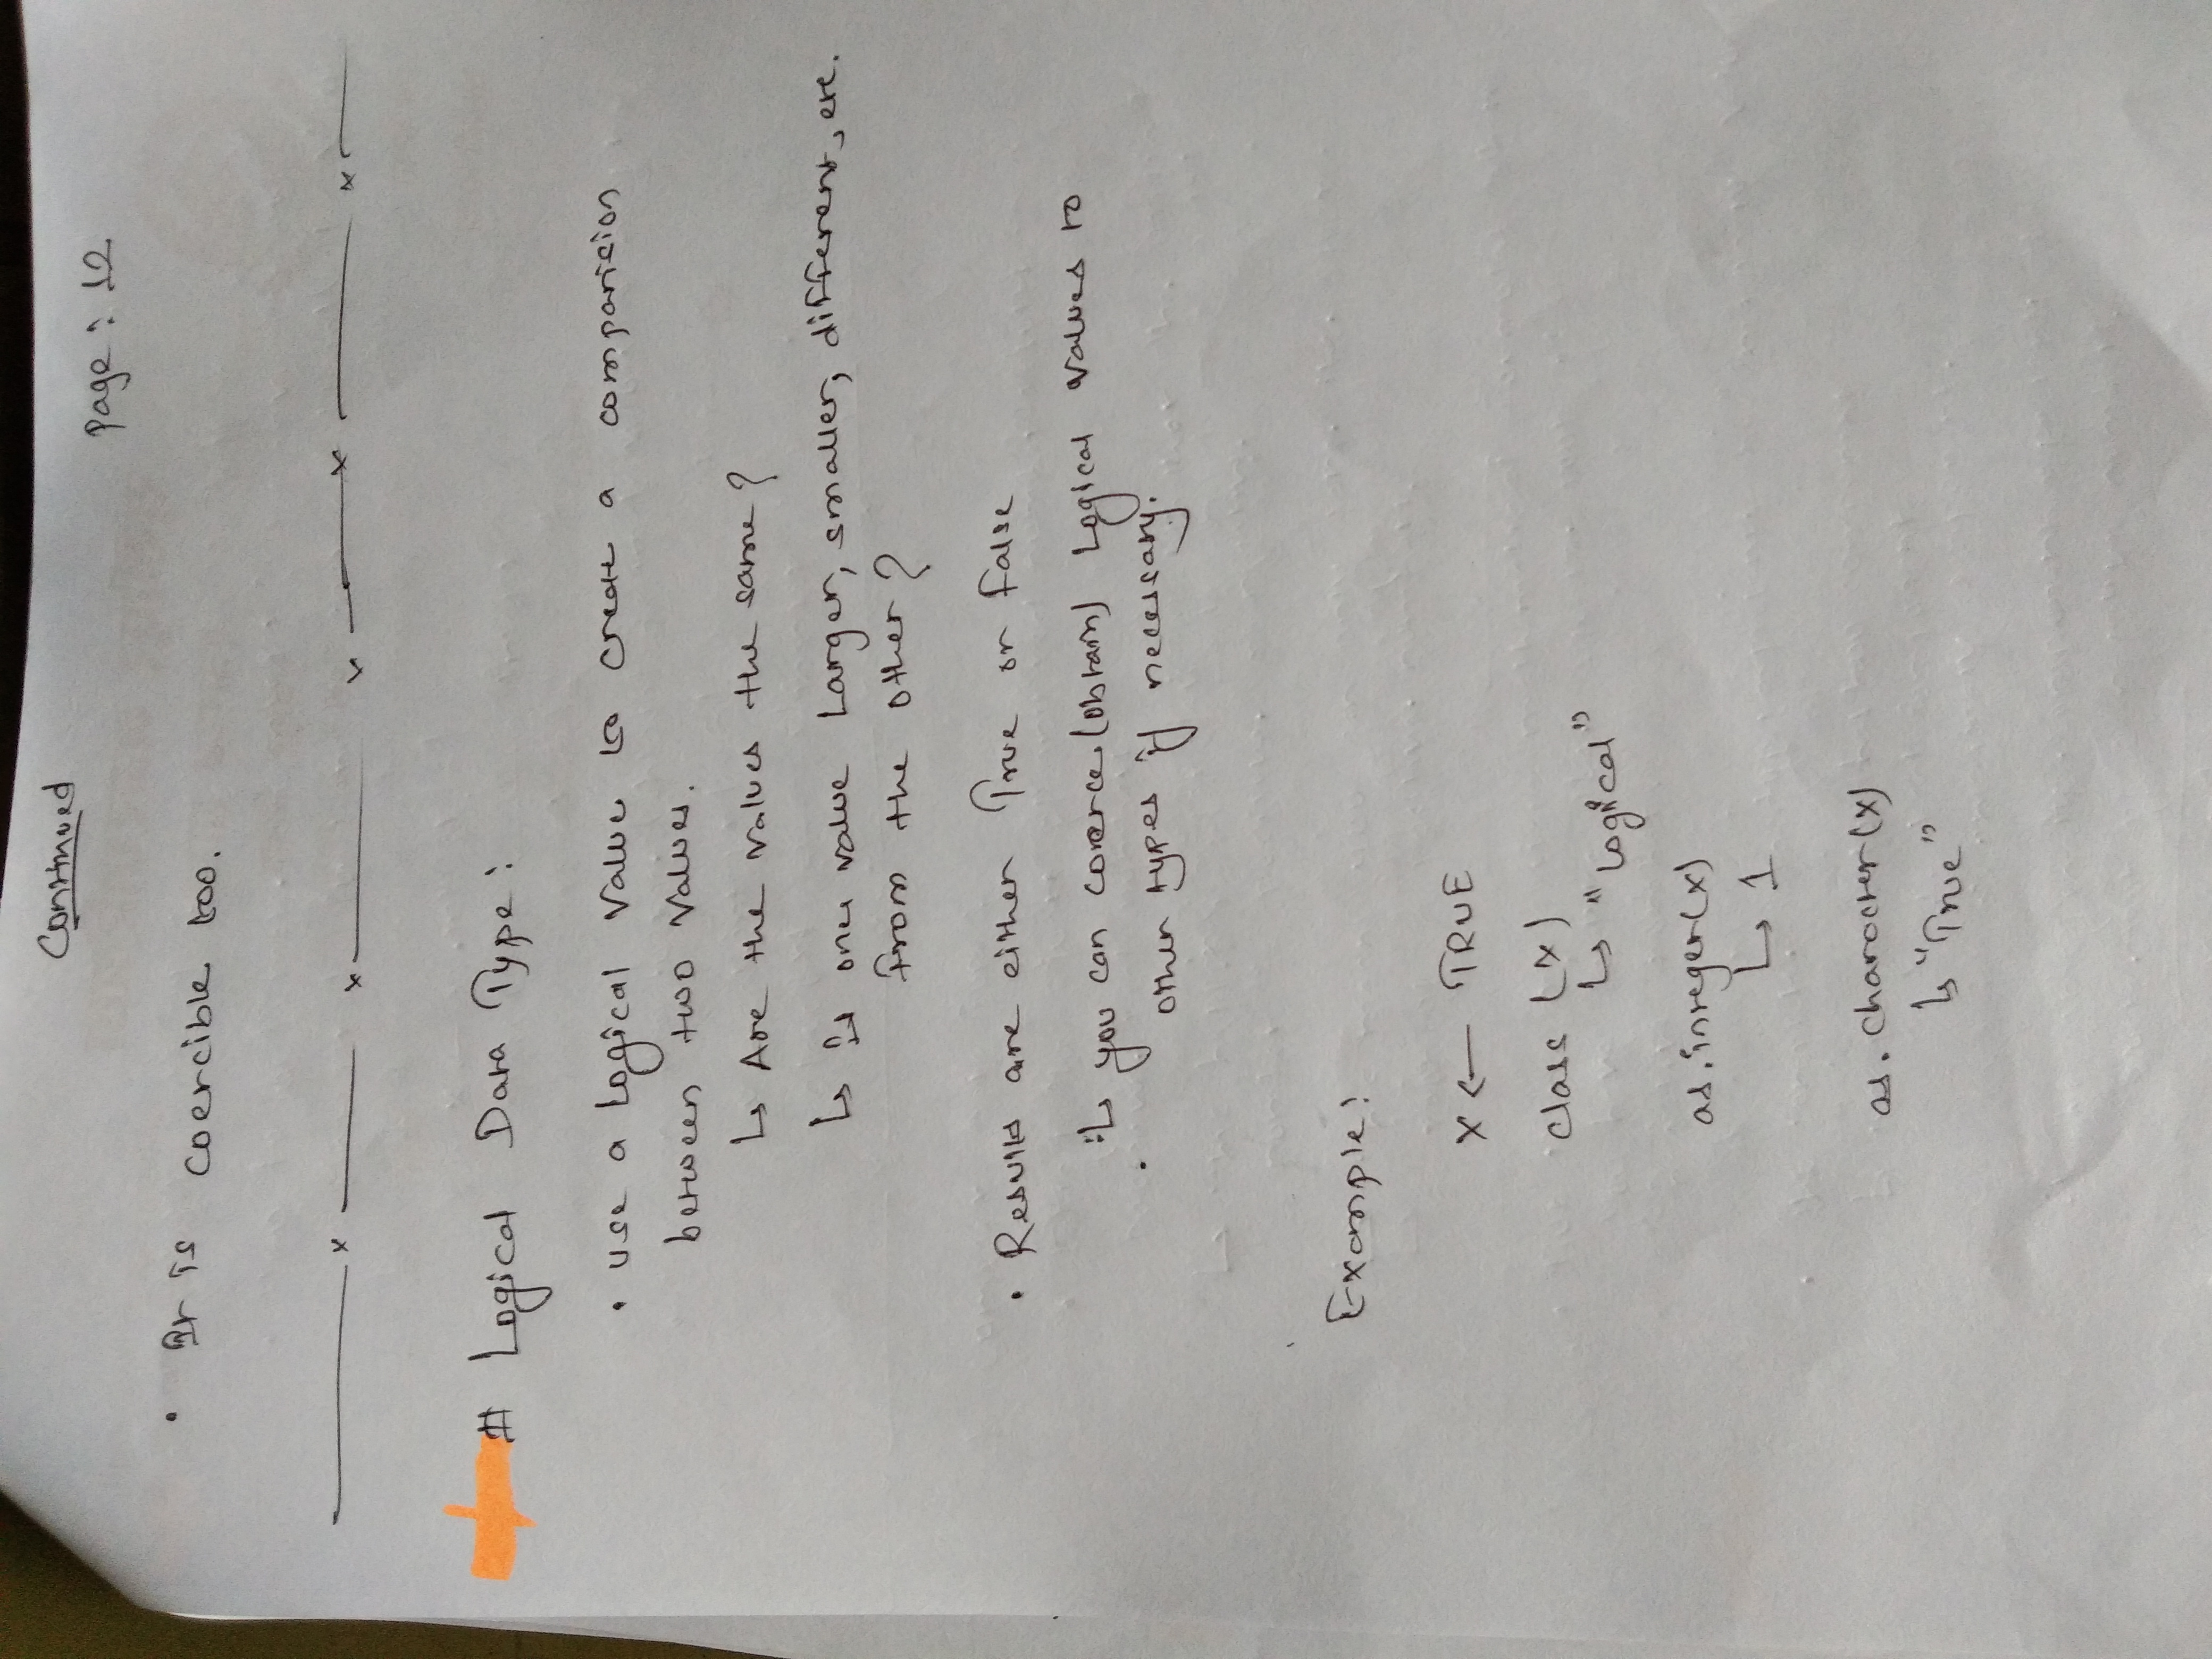 Continued
Page: 12
• It is coercible too.
# Logical Data Type:
• use a logical value to create a comparision
between two values.
↳ Are the values the same?
↳ Is one value larger, smaller, different, etc.
from the other?
• Results are either True or False
↳ you can coerce (obtain) logical values to
other types if necessary.
Example:
x ← TRUE
class (x)
↳ "logical"
as.integer(x)
↳ 1
as.character(x)
↳ "True"